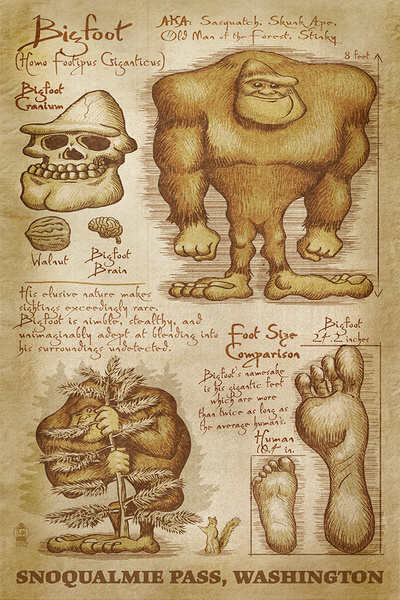 Bigfoot
(Homo Footipus Giganticus)
AKA: Sasquatch, Skunk Ape,
Old Man of the Forest, Stinky
8 feet
Bigfoot
Cranium
Walnut
Bigfoot
Brain
His elusive nature makes
sightings exceedingly rare.
Bigfoot is nimble, stealthy, and
unimaginably adept at blending into
his surroundings undetected.
Foot Size
Comparison
Bigfoot
24.2 inches
Bigfoot's namesake
is his gigantic feet
which are more
than twice as long as
the average human's.
Human
10.4 in.
SNOQUALMIE PASS, WASHINGTON